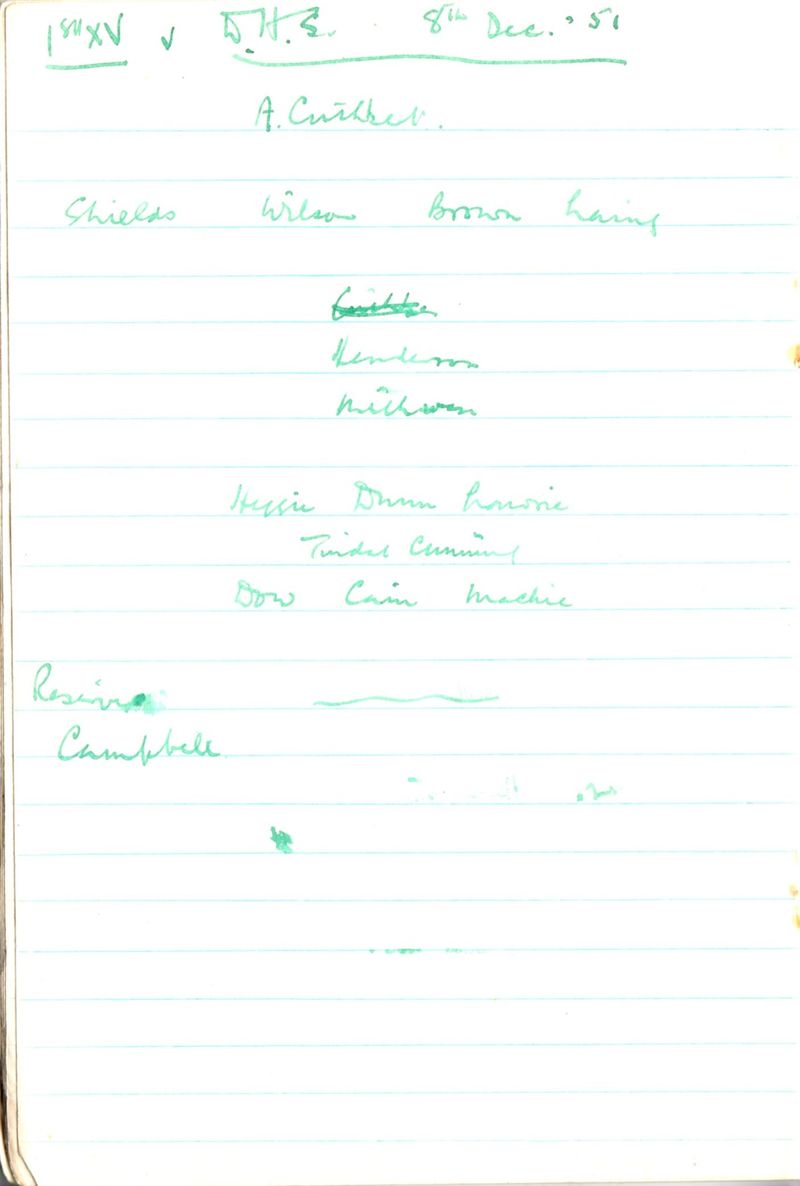 1st XV v D.H.S. 8th Dec. '51
A. Cuthbert.
Shields Wilson Brown Laing
Henderson
Methven
Heggie Dunn
Tindal Cumming
Dow Cain Mackie
Reserve
Campbell